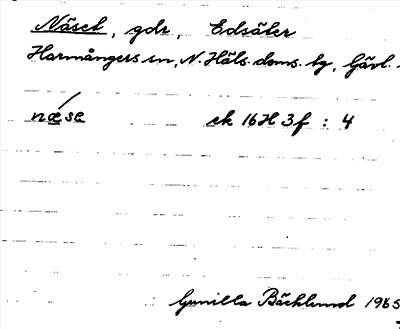 Näset, gdr, Edsäter
Harmångers sn, N. Häls. doms. tg, Gävl.
næ´se ek 16H 3f : 4
Gunilla Bäcklund 1965